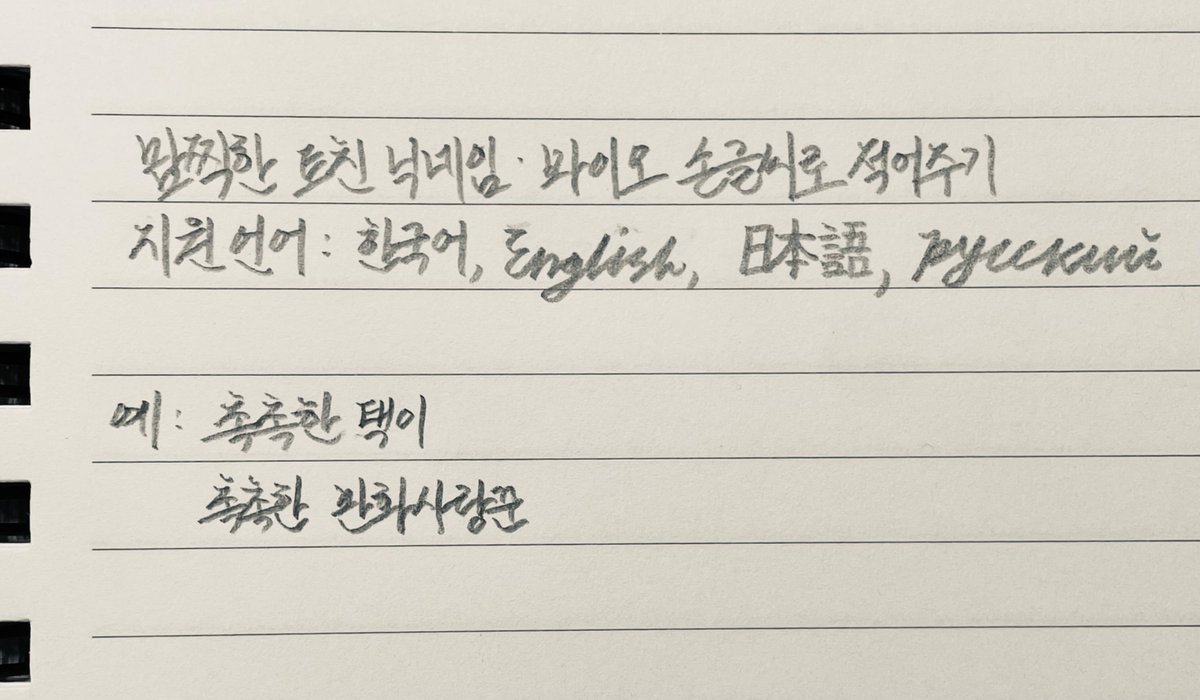 깜찍한 트친 닉네임·바이오 손글씨로 적어주기
지원언어: 한국어, English, 日本語, русский
예: 촉촉한 택이
촉촉한 만화사랑꾼